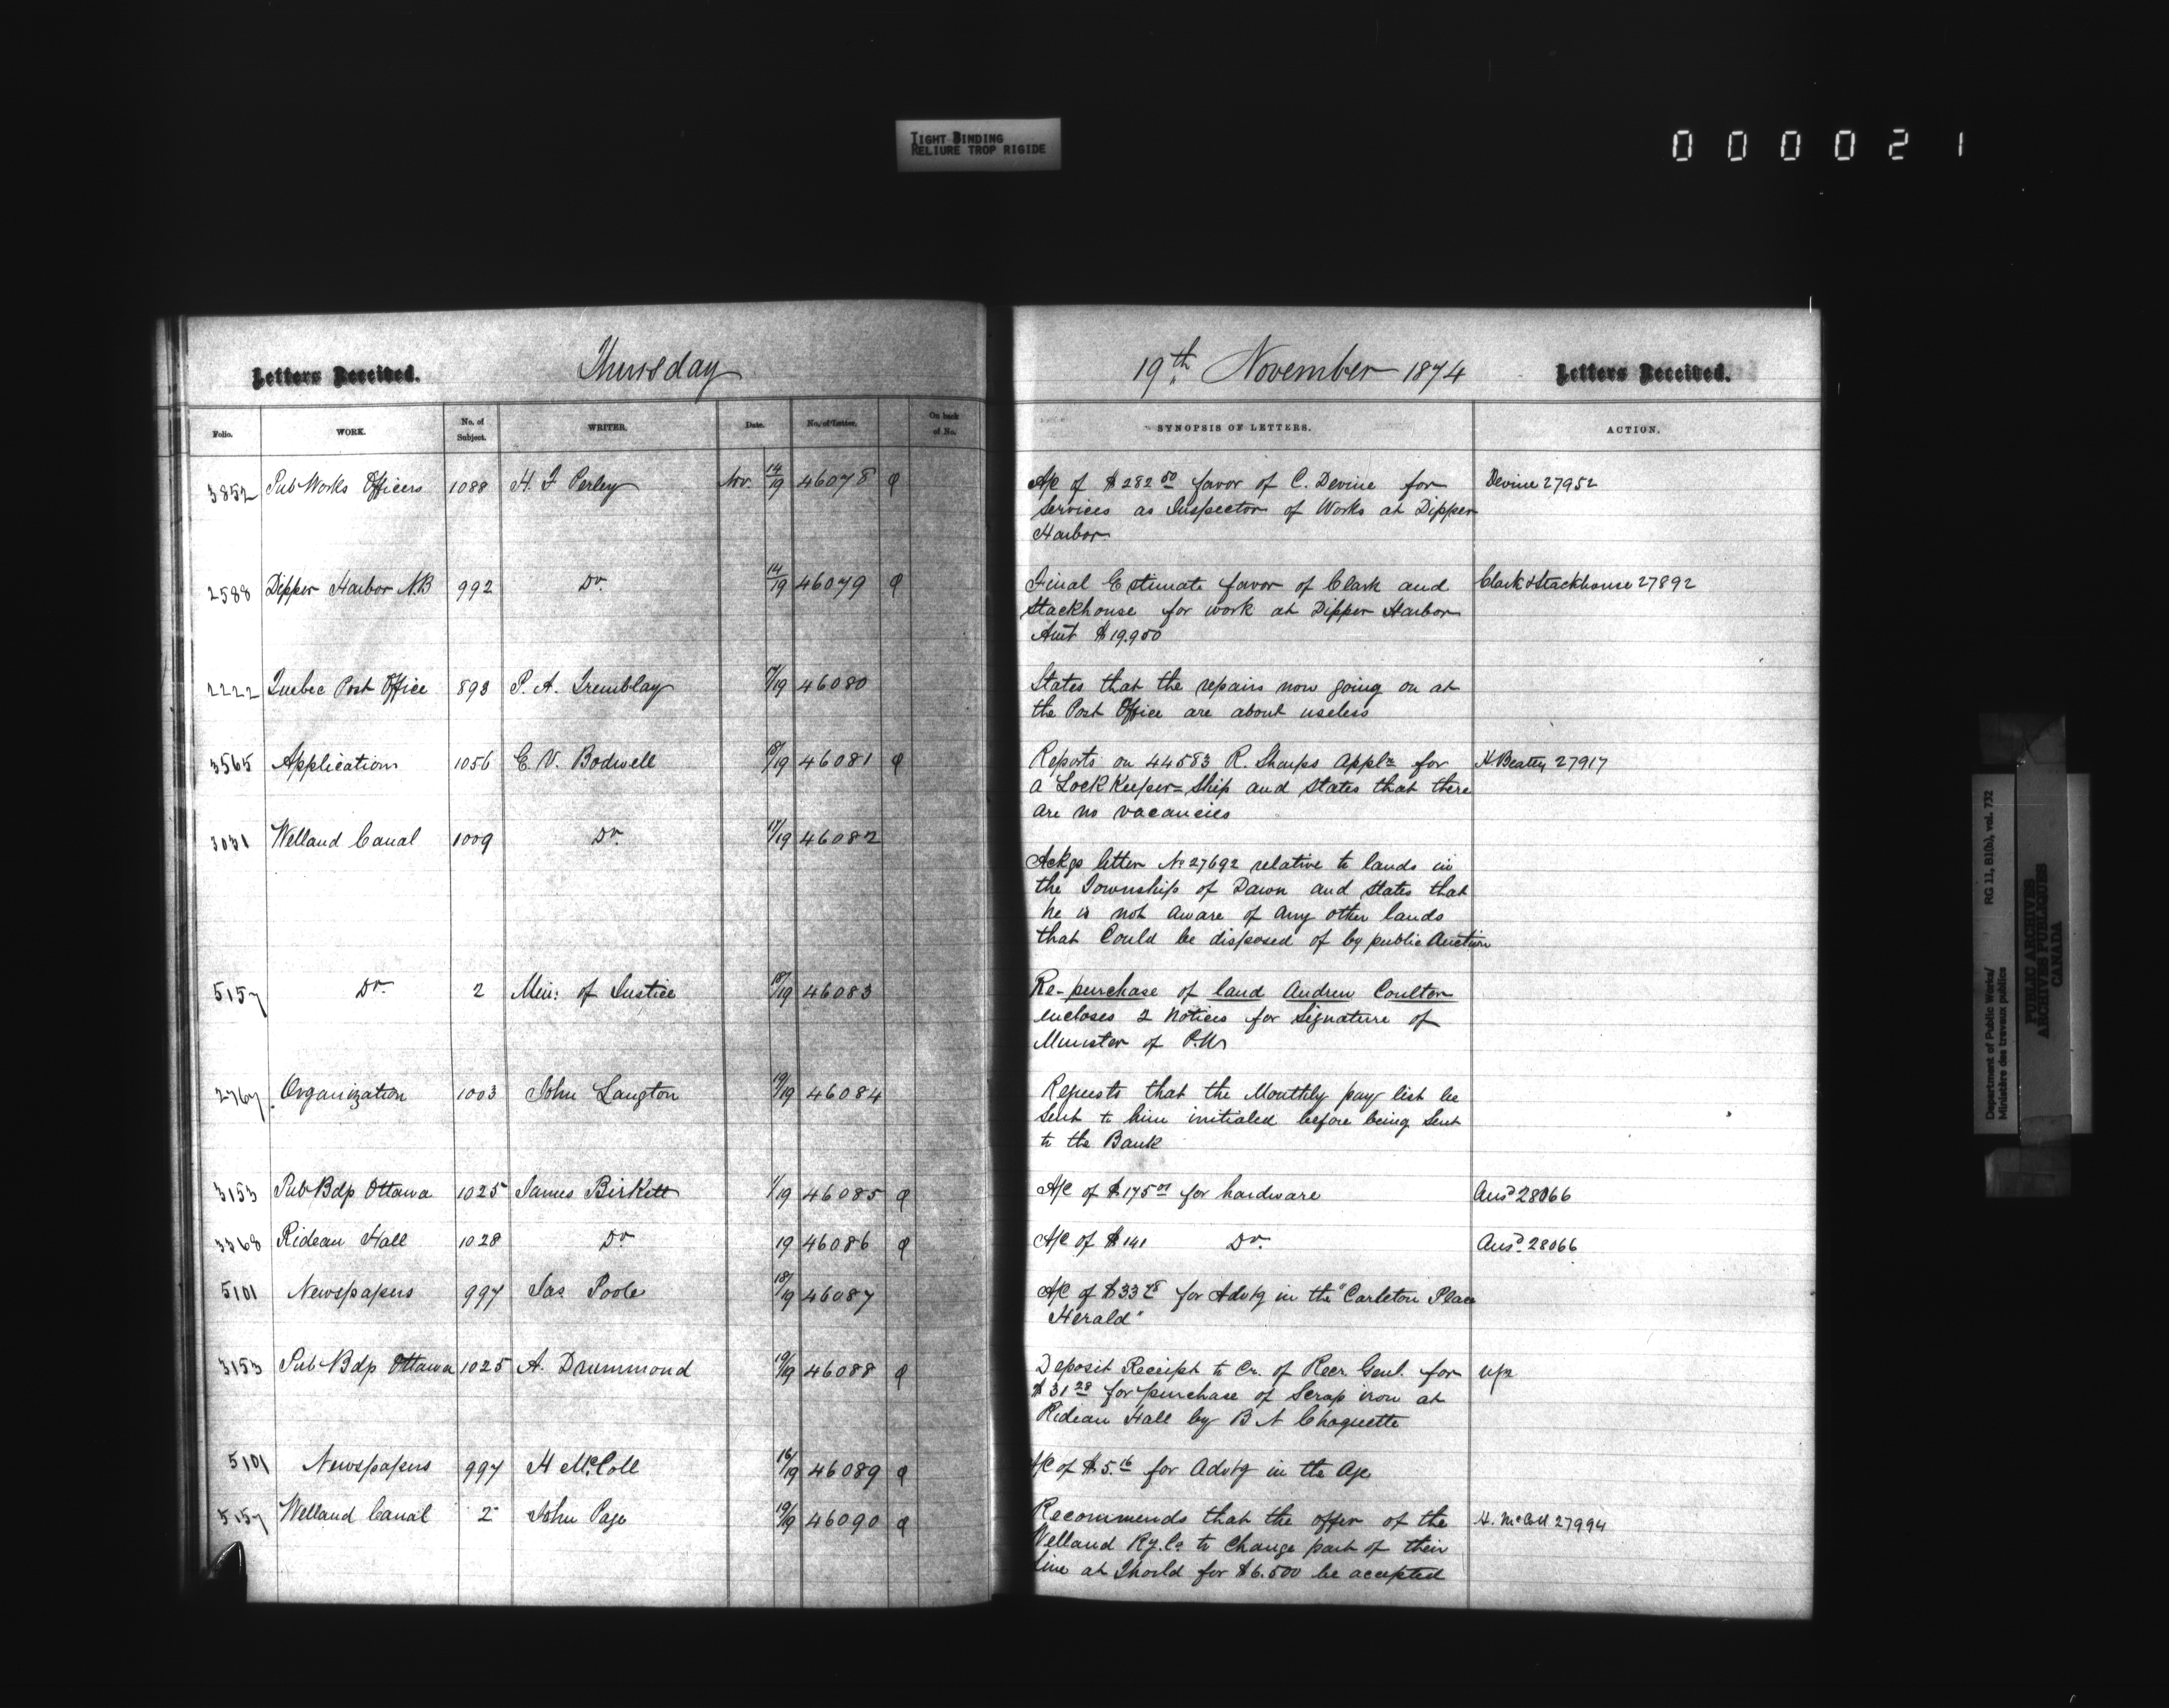 TIGHT BINDING
RELIURE TROP RIGIDE
0 0 0 0 2 1
Letters Received.
Thursday
Folio. WORK. No. of Subject. WRITER. Date. No. of Letter. On back of No.
3852 Pub Works Officers 1088 H. F. Perley Nov. 14/19 46078
2588 Dipper Harbor N.B 992 Do. 14/19 46079
2222 Quebec Post Office 893 P. A. Tremblay 17/19 46080
3565 Application 1056 E. V. Bodwell 18/19 46081
3031 Welland Canal 1009 Do. 17/19 46082
5157 Do. 2 Min: of Justice 18/19 46083
2767 Organization 1003 John Langton 19/19 46084
3153 Pub Bdgs Ottawa 1025 James Birkett 1/19 46085
3368 Rideau Hall 1028 Do 19 46086
5101 Newspapers 997 Jas Poole 18/19 46087
3153 Pub Bdgs Ottawa 1025 A. Drummond 19/19 46088
5101 Newspapers 997 H McColl 16/19 46089
5157 Welland Canal 2 John Page 19/19 46090
19th November 1874
Letters Received.
SYNOPSIS OF LETTERS. ACTION.
A/c of $282 50 favor of C. Devine for Devine 27952
services as Inspector of Works at Dipper
Harbor
Final Estimate favor of Clark and Clark & Stackhouse 27892
Stackhouse for work at Dipper Harbor
Amt $19.950
States that the repairs now going on at
the Post Office are about useless
Reports on 44583 R. Sharps Appln for H Beatty 27917
a Lock Keeper=Ship and States that there
are no vacancies
Ackgs letter No 27692 relative to lands in
the Township of Dawn and states that
he is not aware of any other lands
that Could be disposed of by public Auction
Re-purchase of land Andrew Coulter
encloses 2 Notices for Signature of
Minister of P.Ws
Requests that the Monthly pay list be
sent to him initialed before being sent
to the Bank
A/C of $175 01 for hardware Ansd 28066
A/C of $141 Do. Ansd. 28066
A/C of $33 48 for Advtg in the "Carleton Place
Herald"
Deposit Receipt to Cr. of Recr Genl. for
$31 28 for purchase of Scrap iron at
Rideau Hall by B N Choquette
A/C of $5.16 for Advtg in the Age
Recommends that the offer of the H. McColl 27994
Welland Ry. Co to Change part of their
line at Thorold for $6.500 be accepted
Department of Public Works/ RG 11, B1(b), vol. 732
Ministère des travaux publics
PUBLIC ARCHIVES
ARCHIVES PUBLIQUES
CANADA